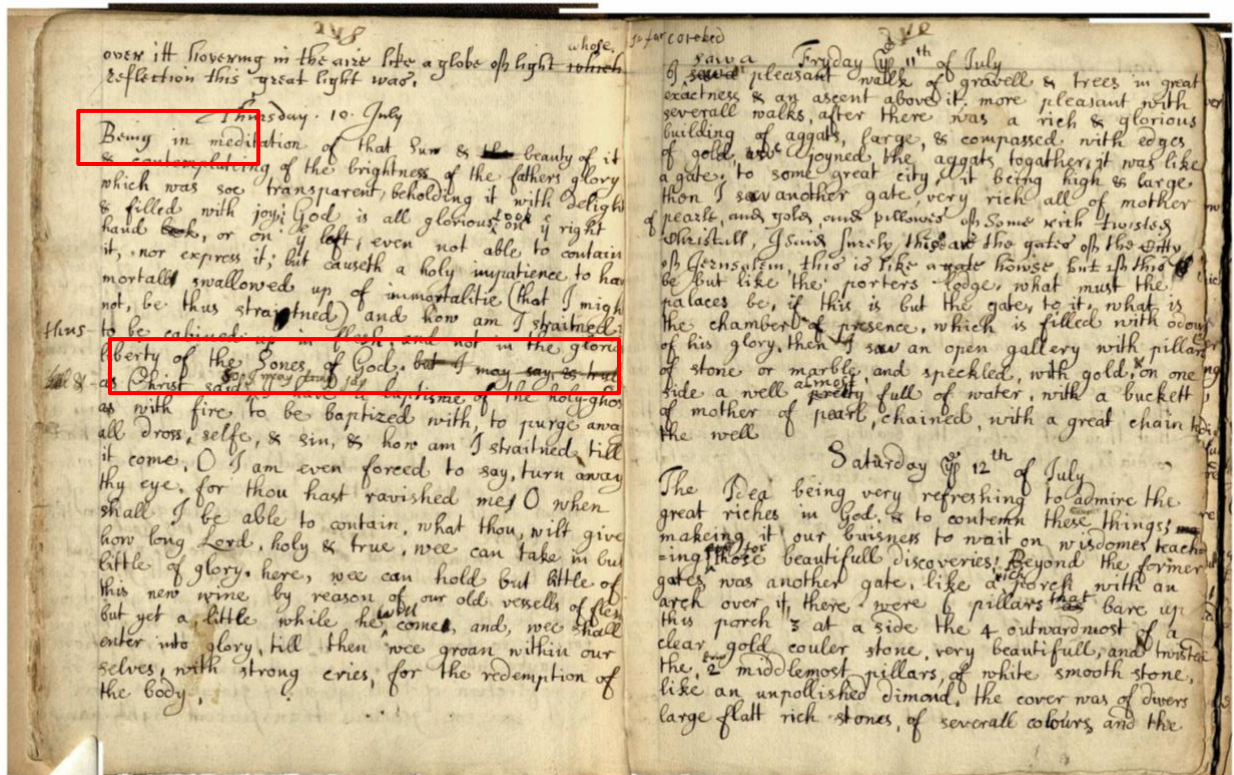 over itt hovering in the aire like a globe of light which whose
reflection this great light was.
Thursday. 10. July
Being in meditation of that Sun & the beauty of it
& contemplating of the brightness of the fathers glory
which was soe transparent, beholding it with delight
& filled with joy; God is all glorious, look on ye right
hand, or on ye left, even not able to contain
it, nor express it; but causeth a holy impatience to hav
mortall swallowed up of immortalitie (that I migh
not, be thus straitned) and how am I straitned:
thus
to be cabined up in flesh, and not in the glorio
liberty of the Sones of God. but I may say, as tru
as Christ said I have a baptisme of the holy-ghos
as with fire to be baptized with, to purge awa
all dross, selfe, & sin, & how am I straitned, till
it come, O I am even forced to say, turn away
thy eye, for thou hast ravished me, O when
shall I be able to contain, what thou, wilt give
how long Lord, holy & true, wee can take in but
little of glory, here, wee can hold but little of
this new wine by reason of our old vessells of fles
but yet a little while he will come, and, wee shall
enter into glory, till then wee groan within our
selves, with strong cries, for the redemption of
the body.
so far
Fryday ye 11th of July
saw a pleasant walk of gravell & trees in great
exactness & an ascent above it, more pleasant with
severall walks, after there was a rich & glorious
building of aggats, large, & compassed with edges
of gold, joyned the aggats together, it was like
a gate, to some great city, it being high & large
then I saw another gate, very rich all of mother
of pearle, and gold, and pillows of some with twisted
Christall, I said surely these are the gates of the Citty
of Jerusalem, this is like a gate howse but if this
be but like the porters lodge, what must the
palaces be, if this is but the gate, to it, what is
the chamber of presence, which is filled with odour
of his glory, then I saw an open gallery with pillars
of stone or marble, and speckled, with gold, on one
side a well almost pretty full of water, with a buckett
of mother of pearl, chained, with a great chain to
the well
Saturday ye 12th of July
The Idea being very refreshing to admire the
great riches in God, & to contemn these things;
makeing it our buisness to wait on wisdomes teach
=ing for those beautifull discoveries; Beyond the former
gates was another gate, like a rich Porch with an
arch over it, there were 6 pillars that bare up
this porch 3 at a side the 4 outwardmost of a
clear gold couler stone, very beautifull, and twisted
the 2 middlemost pillars, of white smooth stone,
like an unpollished dimond, the cover was of divers
large flatt rich stones, of severall colours, and the